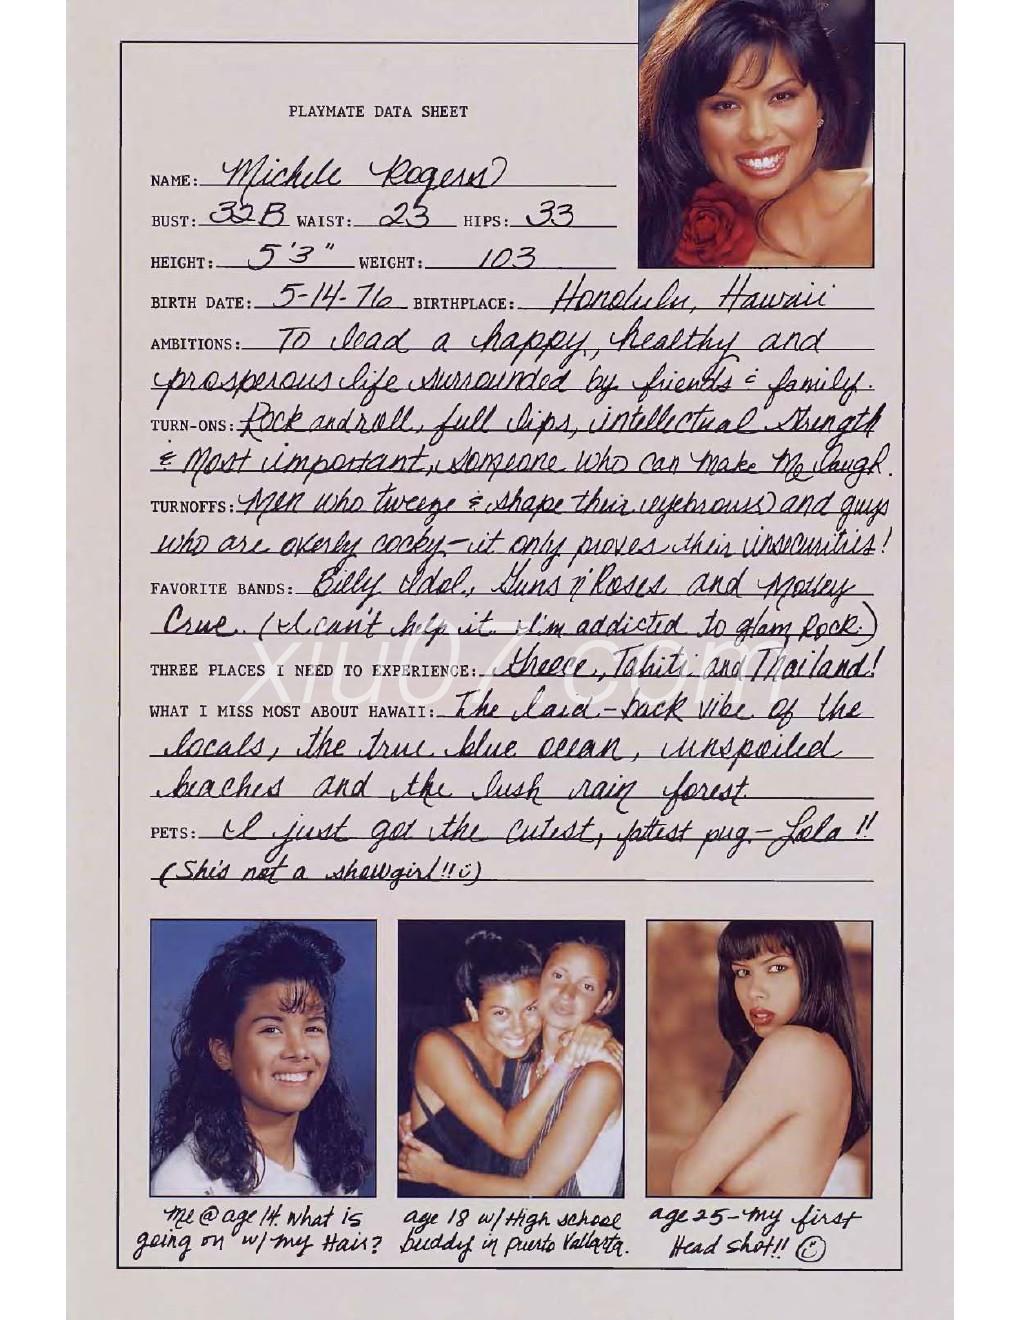 PLAYMATE DATA SHEET
NAME: Michele Rogers
BUST: 32B WAIST: 23 HIPS: 33
HEIGHT: 5'3" WEIGHT: 103
BIRTH DATE: 5-14-76 BIRTHPLACE: Honolulu, Hawaii
AMBITIONS: To lead a happy, healthy and
prosperous life surrounded by friends & family.
TURN-ONS: Rock and roll, full lips, intellectual strength
& most important, someone who can make me laugh.
TURNOFFS: Men who tweeze & shape their eyebrows and guys
who are overly cocky—it only proves their insecurities!
FAVORITE BANDS: Billy Idol, Guns n' Roses and Motley
Crue. (I can't help it. I'm addicted to glam Rock.)
xiu07.com
THREE PLACES I NEED TO EXPERIENCE: Greece, Tahiti and Thailand!
WHAT I MISS MOST ABOUT HAWAII: The laid-back vibe of the
locals, the true blue ocean, unspoiled
beaches and the lush rain forest.
PETS: I just got the cutest, fattest pug—Lola!!
(She's not a showgirl!!☺)
me @ age 14. What is
going on w/ my Hair?
age 18 w/ High school
buddy in Puerto Vallarta.
age 25-my first
Head shot!! ☺